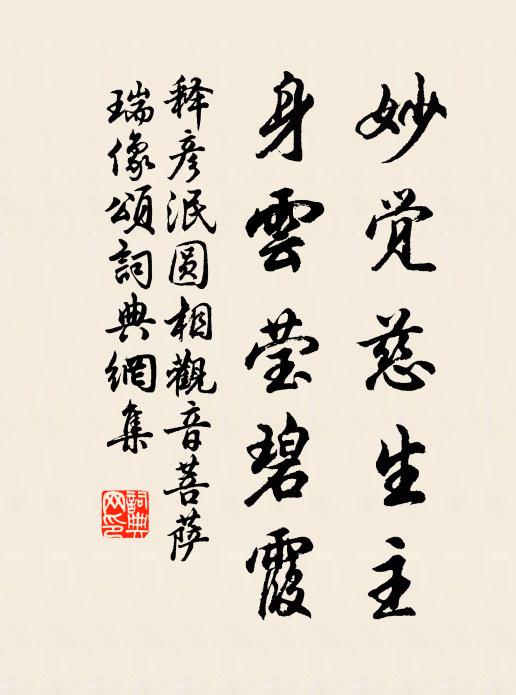 妙觉慈生主
身雲莹碧霞
释彦泯圆相觀音菩萨
瑞像頌詞典網集
詞典网印